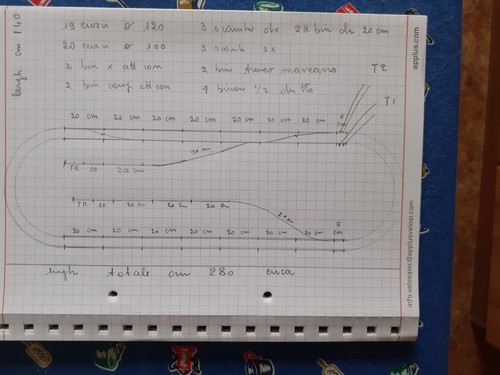 largh cm 140
19 curv ø 120
20 curv ø 100
2 bin x att con
2 bin att con
3 scambi dx
3 scamb sx
2 bin
4 binari 1/2 diritti
28 bin dr 20 cm
T2
T1
20 cm 20 cm 20 cm 20 cm 20 cm 20 cm 20 cm 5 cm
20 cm
TR 10 20 cm
TR 10 20 cm 20 cm 20 cm
20 cm
20 cm 20 cm 20 cm 20 cm 20 cm 20 cm 20 cm 5 cm
lungh totale cm 280 circa
applus.com
info.velosipec@applusvelosi.com